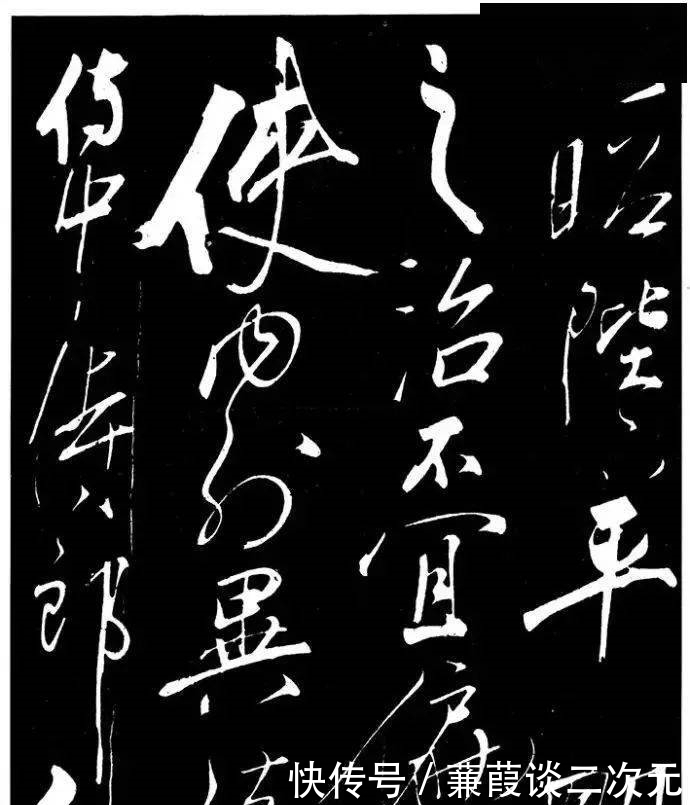 昭陛下平
之治不宜偏
使内外異
侍中侍郎
快传号 / 蒹葭谈二次元